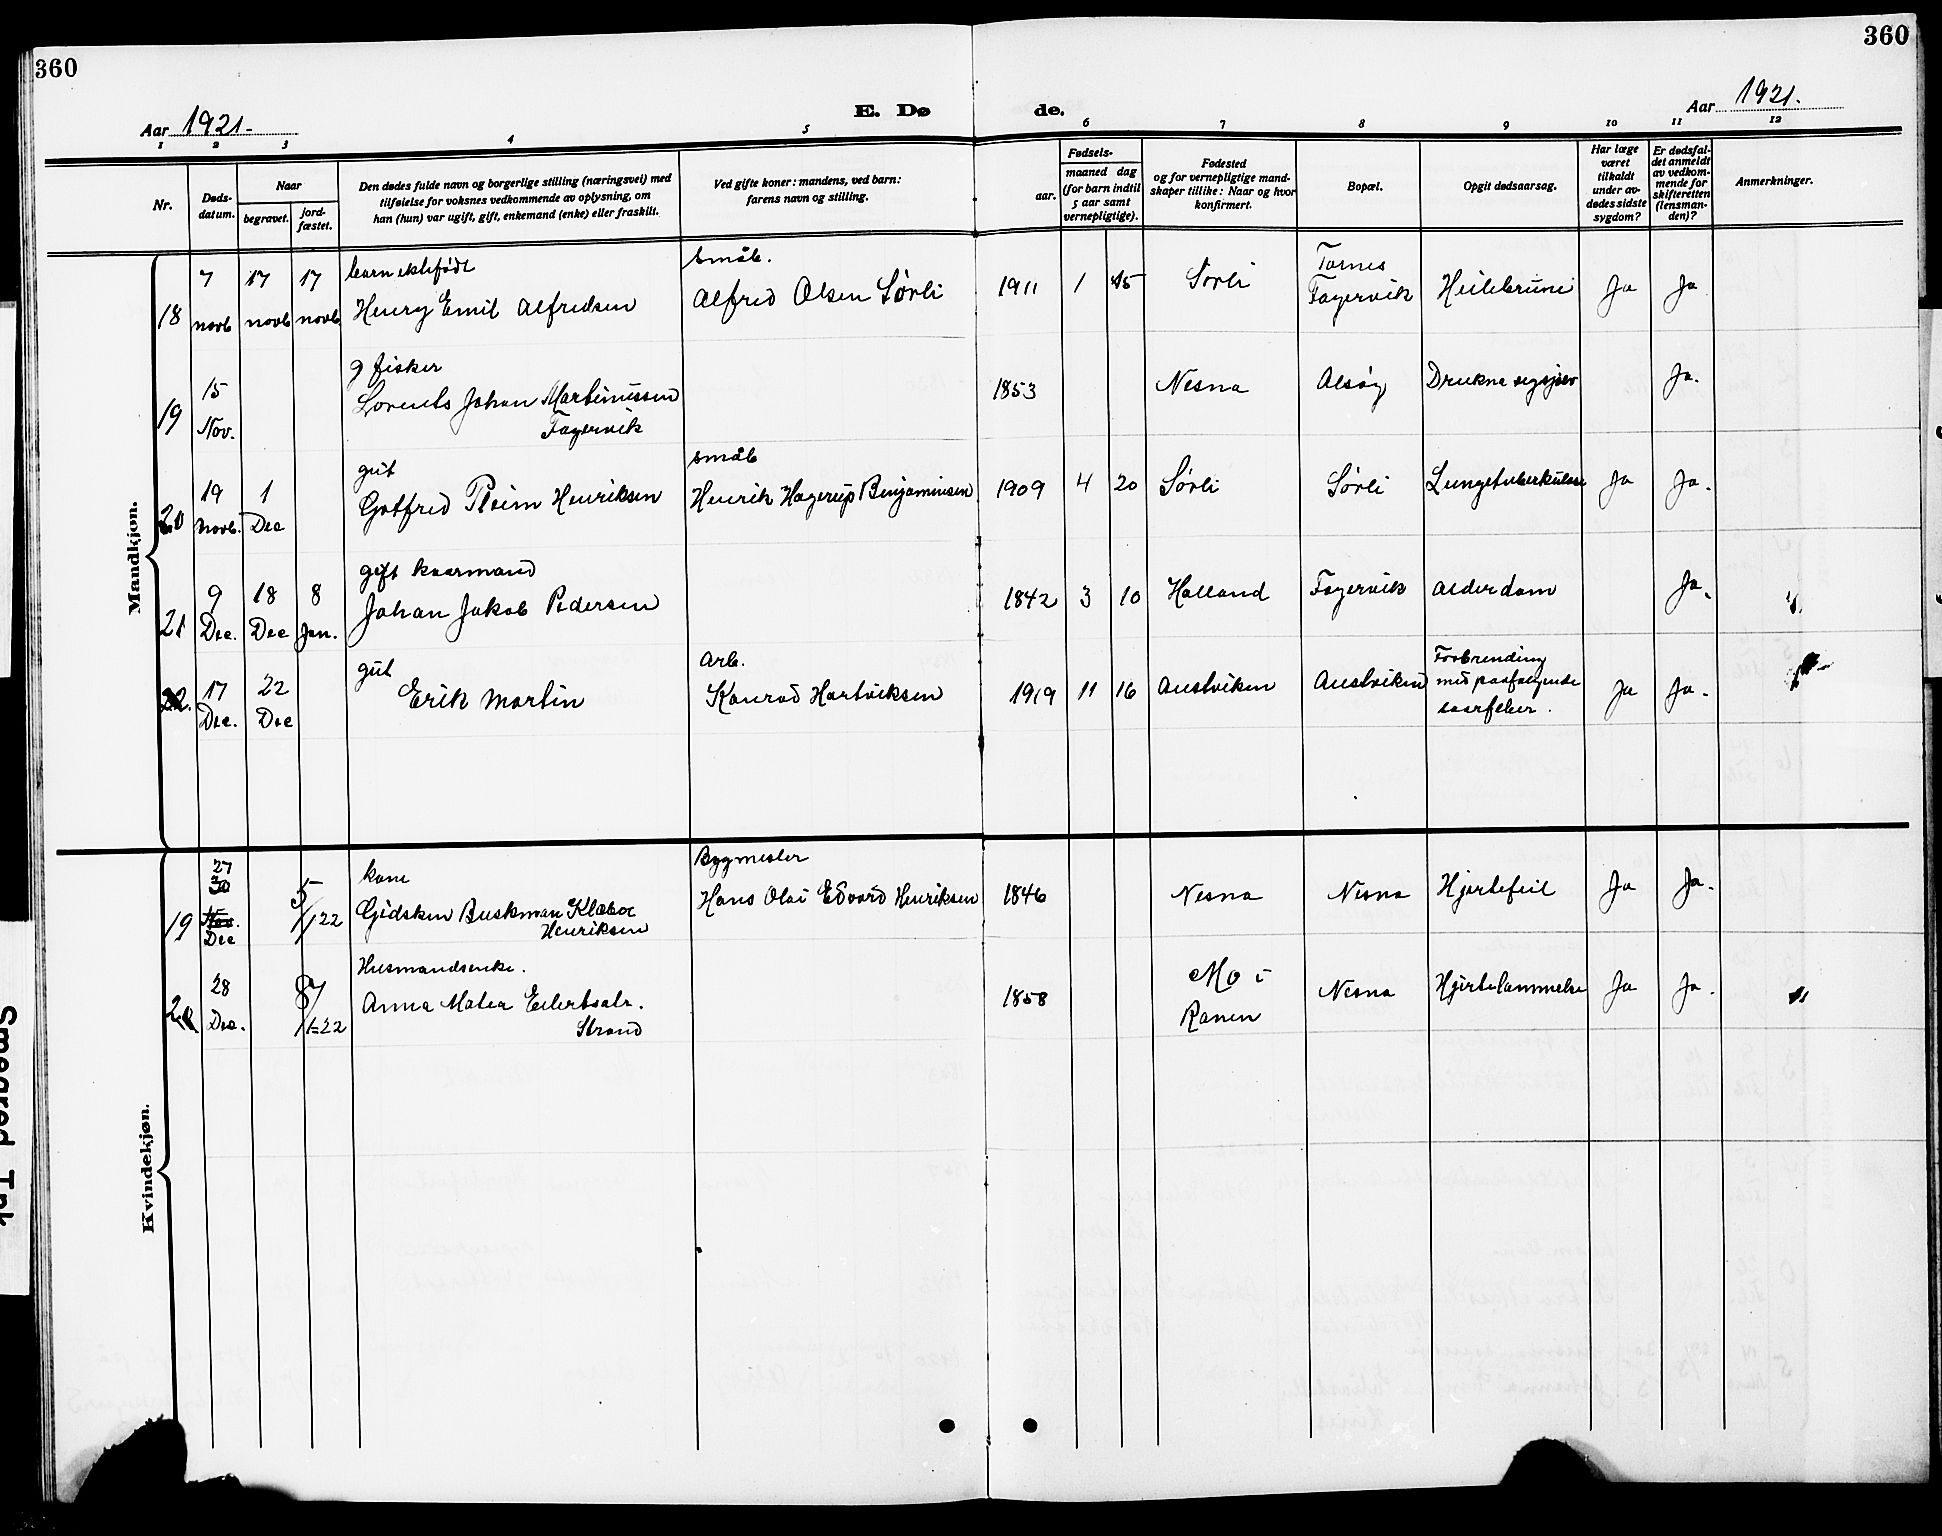 360
360
Aar 1921.
E. Dø
de.
Aar 1921.
1 2 3 4 5 6 7 8 9 10 11 12
Nr.
Døds-
datum.
Naar
begravet.
jord-
fæstet.
Den dødes fulde navn og borgerlige stilling (næringsvei) med
tilføielse for voksnes vedkommende av oplysning, om
han (hun) var ugift, gift, enkemand (enke) eller fraskilt.
Ved gifte koner: mandens, ved barn:
farens navn og stilling.
Fødsels-
aar.
maaned dag
(for barn indtil
5 aar samt
vernepligtige).
Fødested
og for vernepligtige mand-
skaper tillike: Naar og hvor
konfirmert.
Bopæl.
Opgit dødsaarsag.
Har læge
været
tilkaldt
under av-
dødes sidste
sygdom?
Er dødsfal-
det anmeldt
av vedkom-
mende for
skifteretten
(lensman-
den)?
Anmerkninger.
Mandkjøn.
18
7
novb
17
novb
17
novb
barn ektefødt
Henry Emil Alfredsen
småb.
Alfred Olsen Sørli
1911 1 15
Sørli
Tornes
Fagervik
Ja Ja
19
15
Nov.
g fisker
Lorents Johan Martinussen
Fagervik
1853
Nesna
Alsøy
Ja.
20
19
novb.
1
Dec
gut
Gotfred Pleim Henriksen
småb
Henrik Hagerup Benjaminsen
1909 4 20
Sørli
Sørli
Lungetuberkulose
Ja Ja.
21
9
Dec.
18
Dec
8
Jan.
gift kaarmand
Johan Jakob Pedersen
1842 3 10
Holland
Fagervik
Alderdom
Ja.
22.
17
Dec.
22
Dec
gut
Erik Martin
Arb.
Konrad Hartviksen
1919 11 16
Austviken
Austviken
Forbrending
med paafølgende
saarfeber.
Ja Ja.
Kvindekjøn.
19
27
30
Nov.
Dec
5/1 22
kone
Gidsken Buskman Klæboe
Henriksen
Bygmester
Hans Olai Edvard Henriksen
1846
Nesna
Nesna
Hjertefeil
Ja Ja.
20
28
Dec.
8/1-22
Husmandsenke.
Anna Matea Eilertsatr.
Strand
1858
Mo i
Ranen
Nesna
Hjertelammelse
Ja Ja.
Smegred Ink